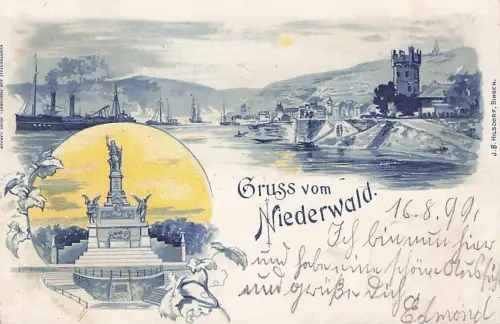 Gruss vom
Niederwald.
16.8.99.
Ich bin nun hier
und habe eine schöne Aussicht
und grüße Dich
Edmond
J. B. HILSDORF, BINGEN.